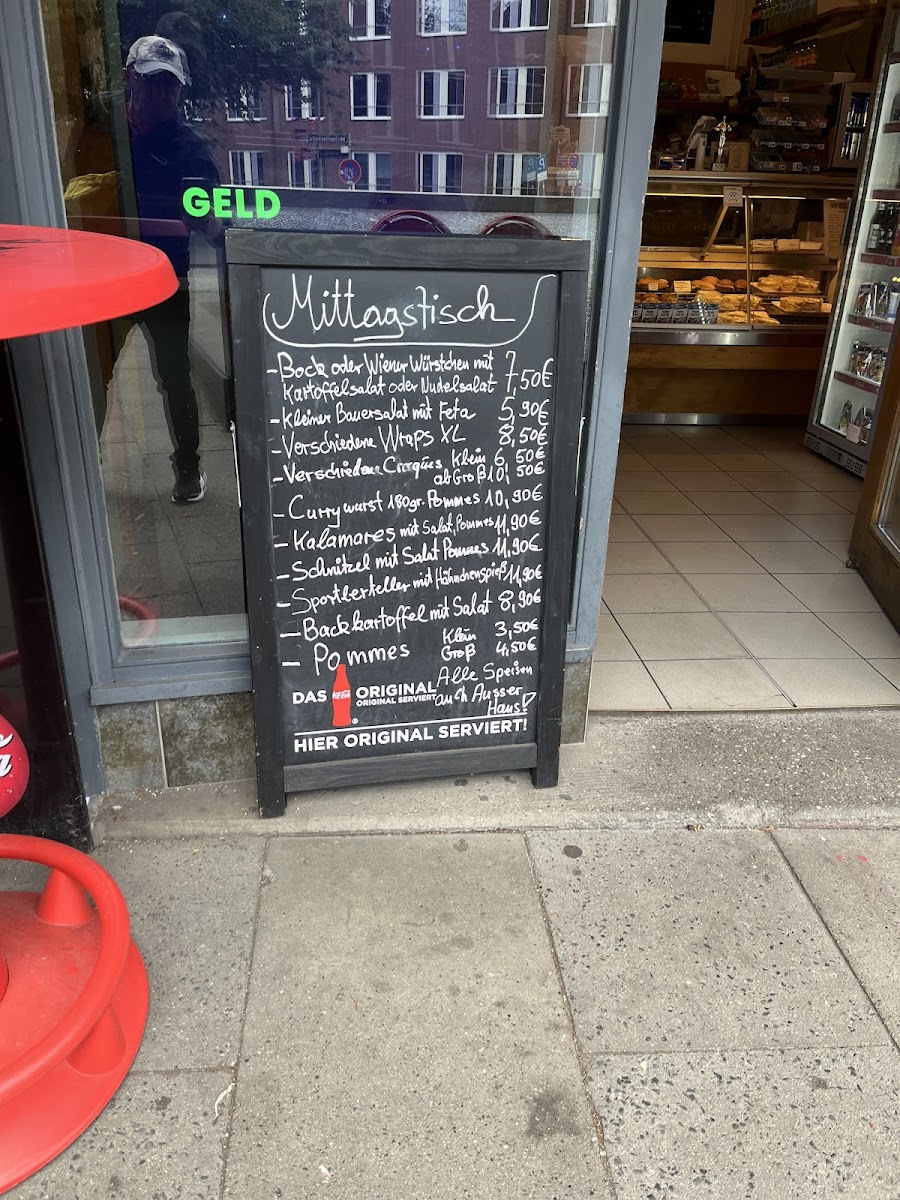 GELD
Mittagstisch
- Bock oder Wiener Würstchen mit 7,50€
Kartoffelsalat oder Nudelsalat
- Kleiner Bauersalat mit Feta 5,90€
- Verschiedene Wraps XL 8,50€
- Verschiedene Croques Klein 6,50€
ab Groß 10,50€
- Currywurst 180gr. Pommes 10,90€
- Kalamares mit Salat, Pommes 11,90€
- Schnitzel mit Salat Pommes 11,90€
- Sportlerteller mit Hähnchenspieß 11,90€
- Backkartoffel mit Salat 8,90€
- Pommes Klein 3,50€
Groß 4,50€
Alle Speisen
auch Ausser
Haus!
DAS Coca-Cola ORIGINAL
ORIGINAL SERVIERT
HIER ORIGINAL SERVIERT!